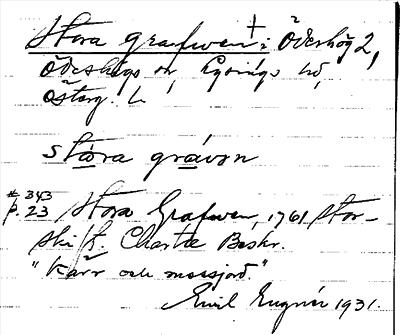 Stora grafwen i Ödeshög 2,
Ödeshögs sn, Lysings hd,
Österg. L.
stωra gravɷn
# 343 Stora Grafwen, 1761 Stor-
p. 23
skift. Charta Beskr.
"Kärr och mossjord."
Emil Eugnér 1931.